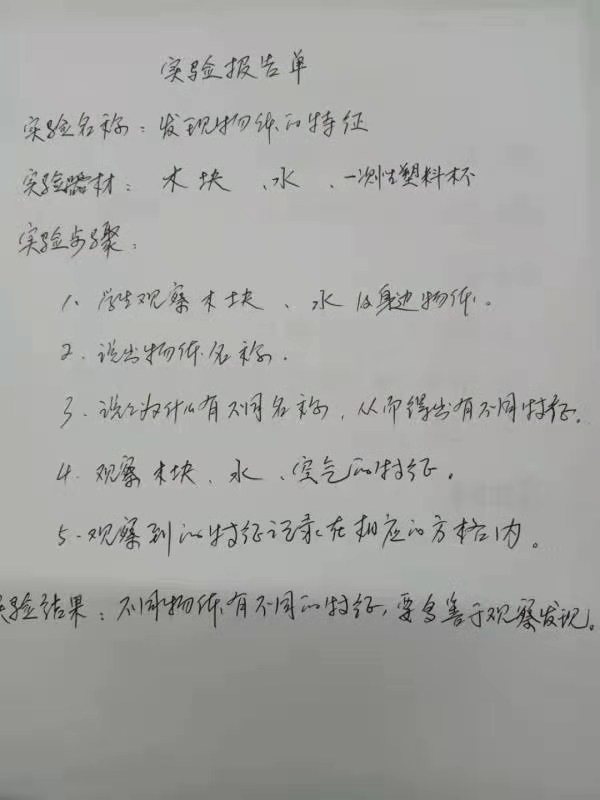 实验报告单
实验名称：发现物体的特征
实验器材：木块、水、一次性塑料杯
实验步骤：
1、学生观察木块、水及身边物体。
2、说出物体名称.
3、说说为什么有不同名称，从而得出有不同特征。
4、观察木块、水、空气的特征。
5、观察到的特征记录在相应的方格内。
实验结果：不同物体有不同的特征，要善于观察发现。